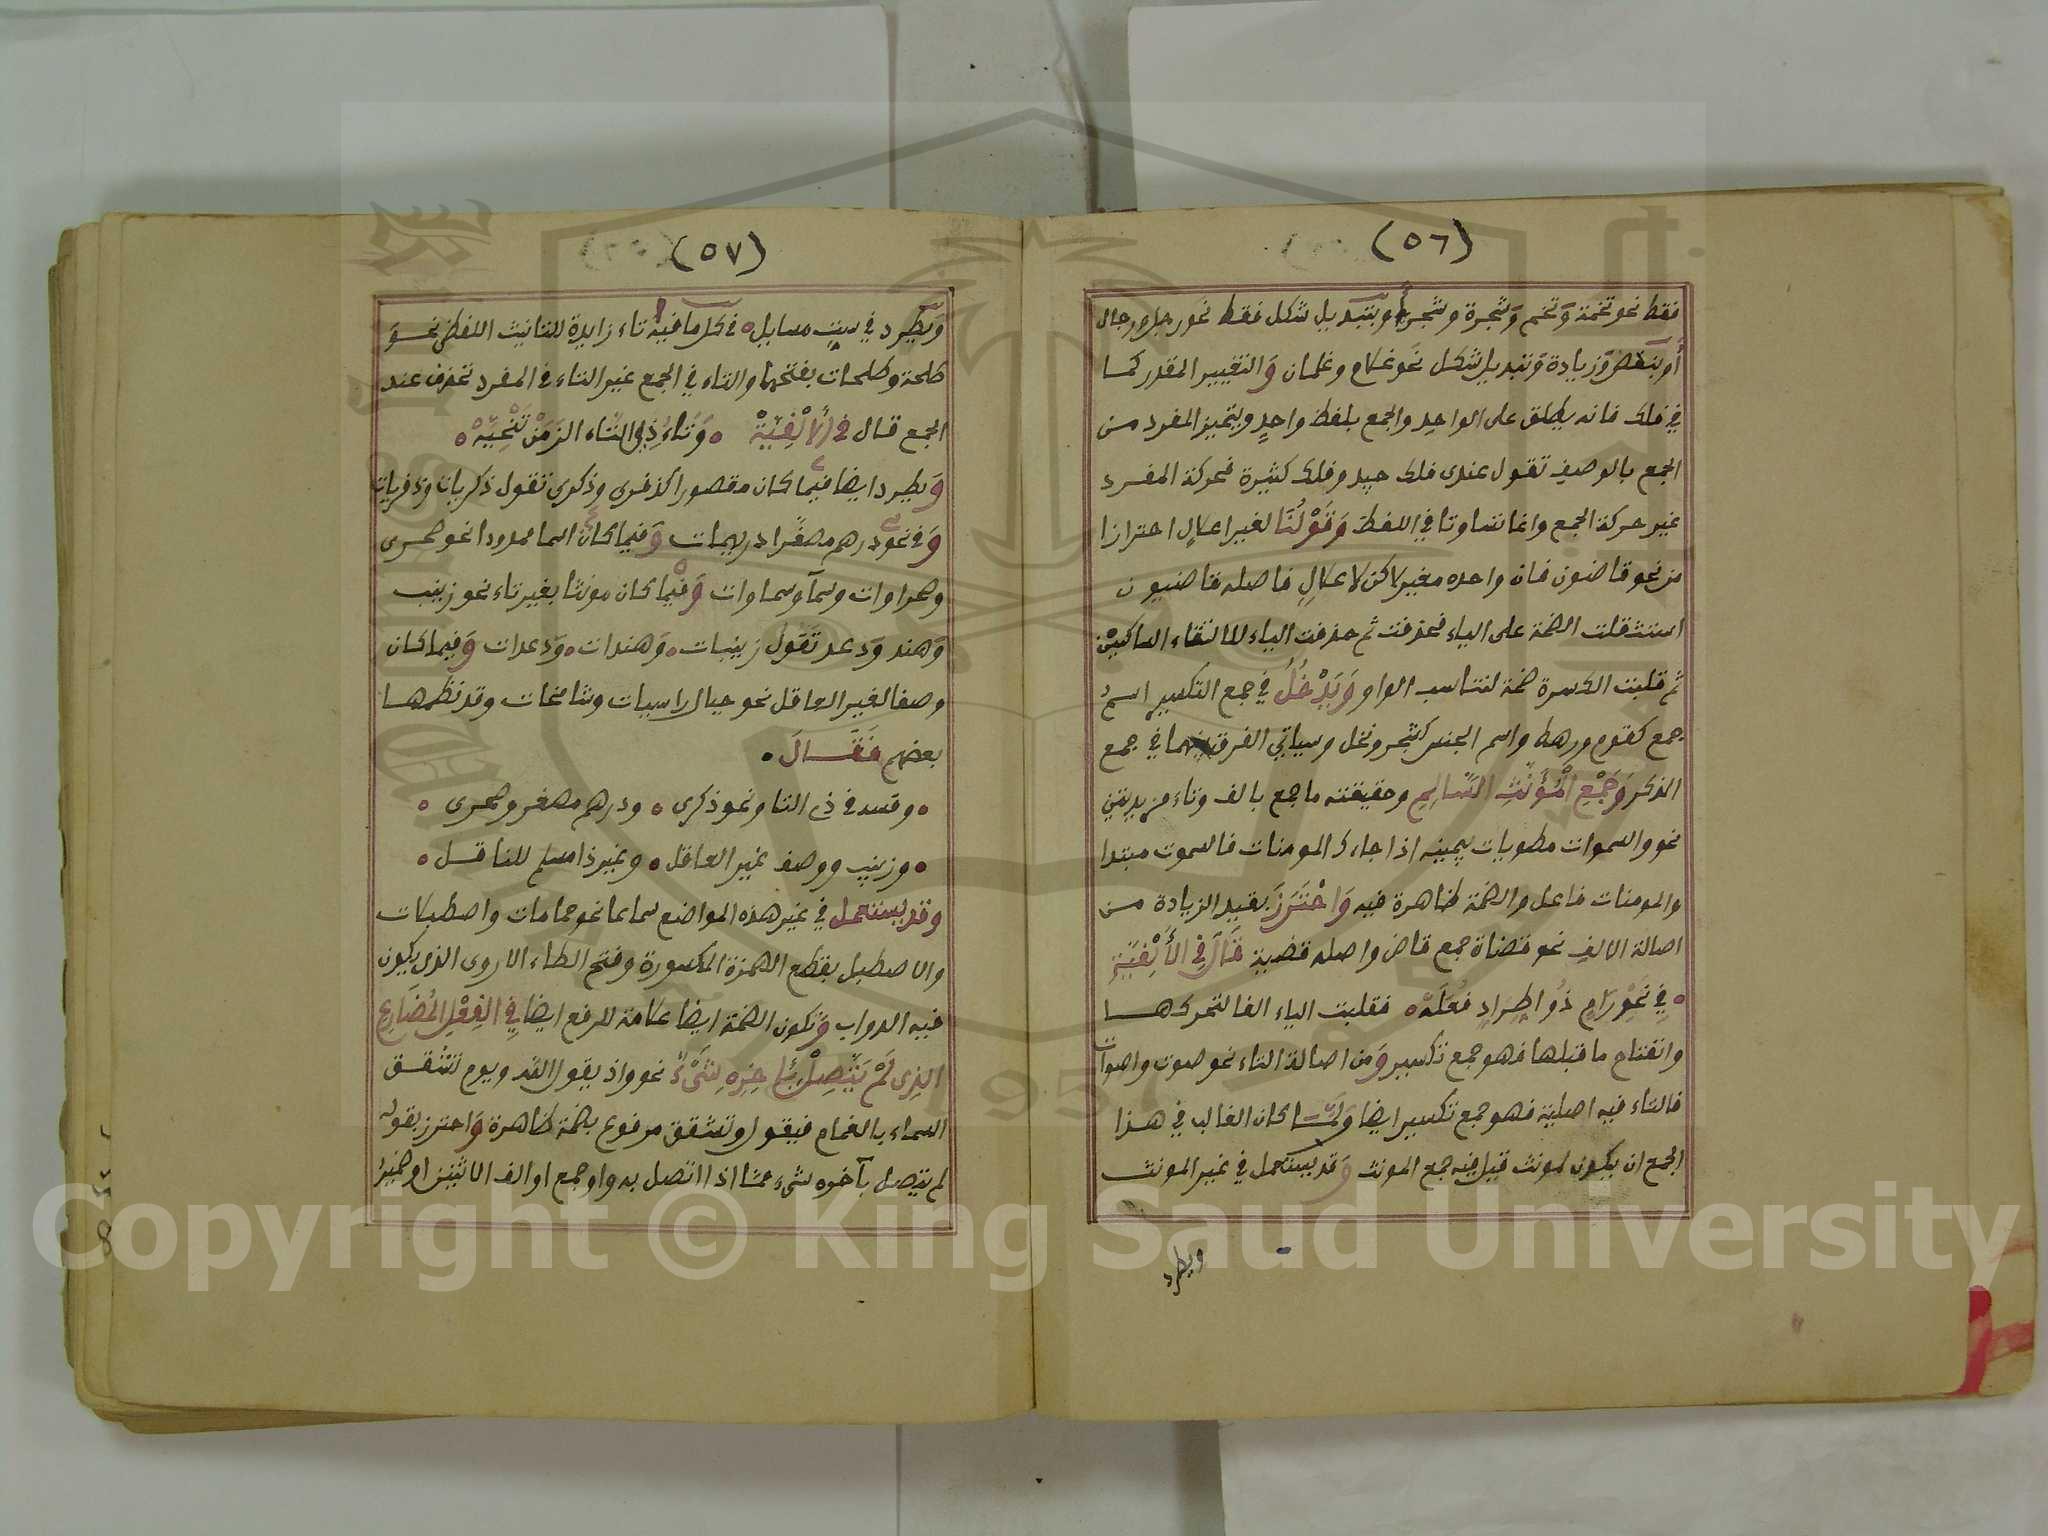 (٥٦)
فقط نحو تخمة وتخم وشجرة وشجر أو بتبديل شكل فقط نحو رجل ورجال
أو بنقص وزيادة وتبديل شكل نحو غلام وغلمان والتغيير المقدر كما
في فلك فانه يطلق على الواحد والجمع بلفظ واحد ويتميز المفرد من
الجمع بالوصف تقول عندى فلك جيد وفلك كثيرة فحركة المفرد
غير حركة الجمع وانما تساوتا في اللفظ وقولنا لغير اعلال احترازا
من نحو قاضون فان واحده مغير لاكن لاعلال فاصله قاضيون
استثقلت الضمة على الياء فحذفت ثم حذفت الياء لالتقاء الساكنين
ثم قلبت الكسرة ضمة لتناسب الواو ويدخل في جمع التكسير اسم
جمع كقوم ورهط واسم الجنس كشجر ونخل وسياتي الفرق بينهما في جمع
الذكر وجمع المؤنث السالم وحقيقته ما جمع بالف وتاء مزيدتين
نحو والسموات مطويات بيمينه اذا جاءك المومنات فالسموت مبتدا
والمومنات فاعل والضمة ظاهرة فيه واحترز بقيد الزيادة من
اصالة الالف نحو قضاة جمع قاض واصله قضية قال في الألفية
في نحو رام ذو اطراد فعله فقلبت الياء الفا لتحركها
وانفتاح ما قبلها فهو جمع تكسير ومن اصالة التاء نحو صوت واصوات
فالتاء فيه اصلية فهو جمع تكسير ايضا ولما كان الغالب في هذا
الجمع ان يكون لمونث قيل فيه جمع المونث وقد يستعمل في غير المونث
ويطرد
(٥٧)
ويطرد في ست مسايل في كل ما فيه تاء زايدة للتانيث اللفظى نحو
طلحة وطلحات بفتحها والتاء في الجمع غير التاء في المفرد تحذف عند
الجمع قال في الألفية وتاء ذي التاء الزمن تنحيه
ويطرد ايضا فيما كان مقصورا كذفرى وذكرى تقول ذكريات وذفريات
وفي نحو درهم مصغرا دريهمات وفيما كان اسما ممدودا نحو صحرى
وصحراوات وسمآ وسماوات وفيما كان مونثا بغير تاء نحو زينب
وهند ودعد تقول زينبات وهندات ودعدات وفيما كان
وصفا لغير العاقل نحو جبال راسيات وشامخات وقد نظمها
بعضهم فقال
وقسه في ذي التا ونحو ذكرى ودرهم مصغر وصحرى
وزينب ووصف غير العاقل وغير ذا مسلم للناقل
وقد يستعمل في غير هذه المواضع سماعا نحو حمامات واصطبلات
والاصطبل بقطع الهمزة المكسورة وفتح الطاء الاروى الذى يكون
فيه الدواب وتكون الضمة ايضا علامة للرفع ايضا في الفعل المضارع
الذى لم يتصل بئاخره شيء نحو واذ يقول الله ويوم تشقق
السماء بالغمام فيقول وتشقق مرفوع بضمة ظاهرة واحترز بقوله
لم يتصل بآخره شيء مما اذا اتصل به واو جمع او الف الاثنين او ضمير
Copyright © King Saud University
1957